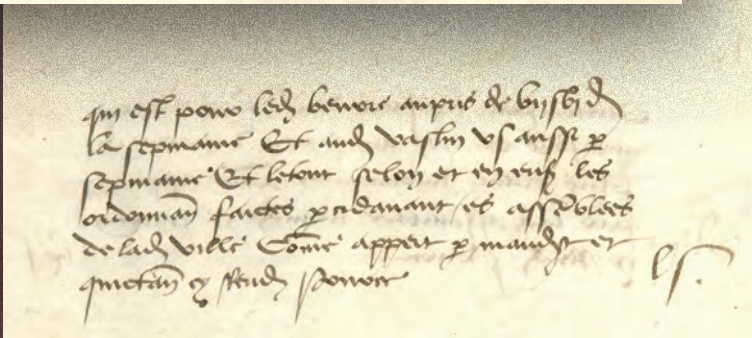 qui est pour led benoit aupris de vijs vj d
la sepmaine Et aud vaslin vs aussi p
sepmaine Et letout selon et en les
ordonnan faictes p cidavant es assēblees
de lad ville Cōme appert p mandt et
quictan cy rend pour ce
ls.